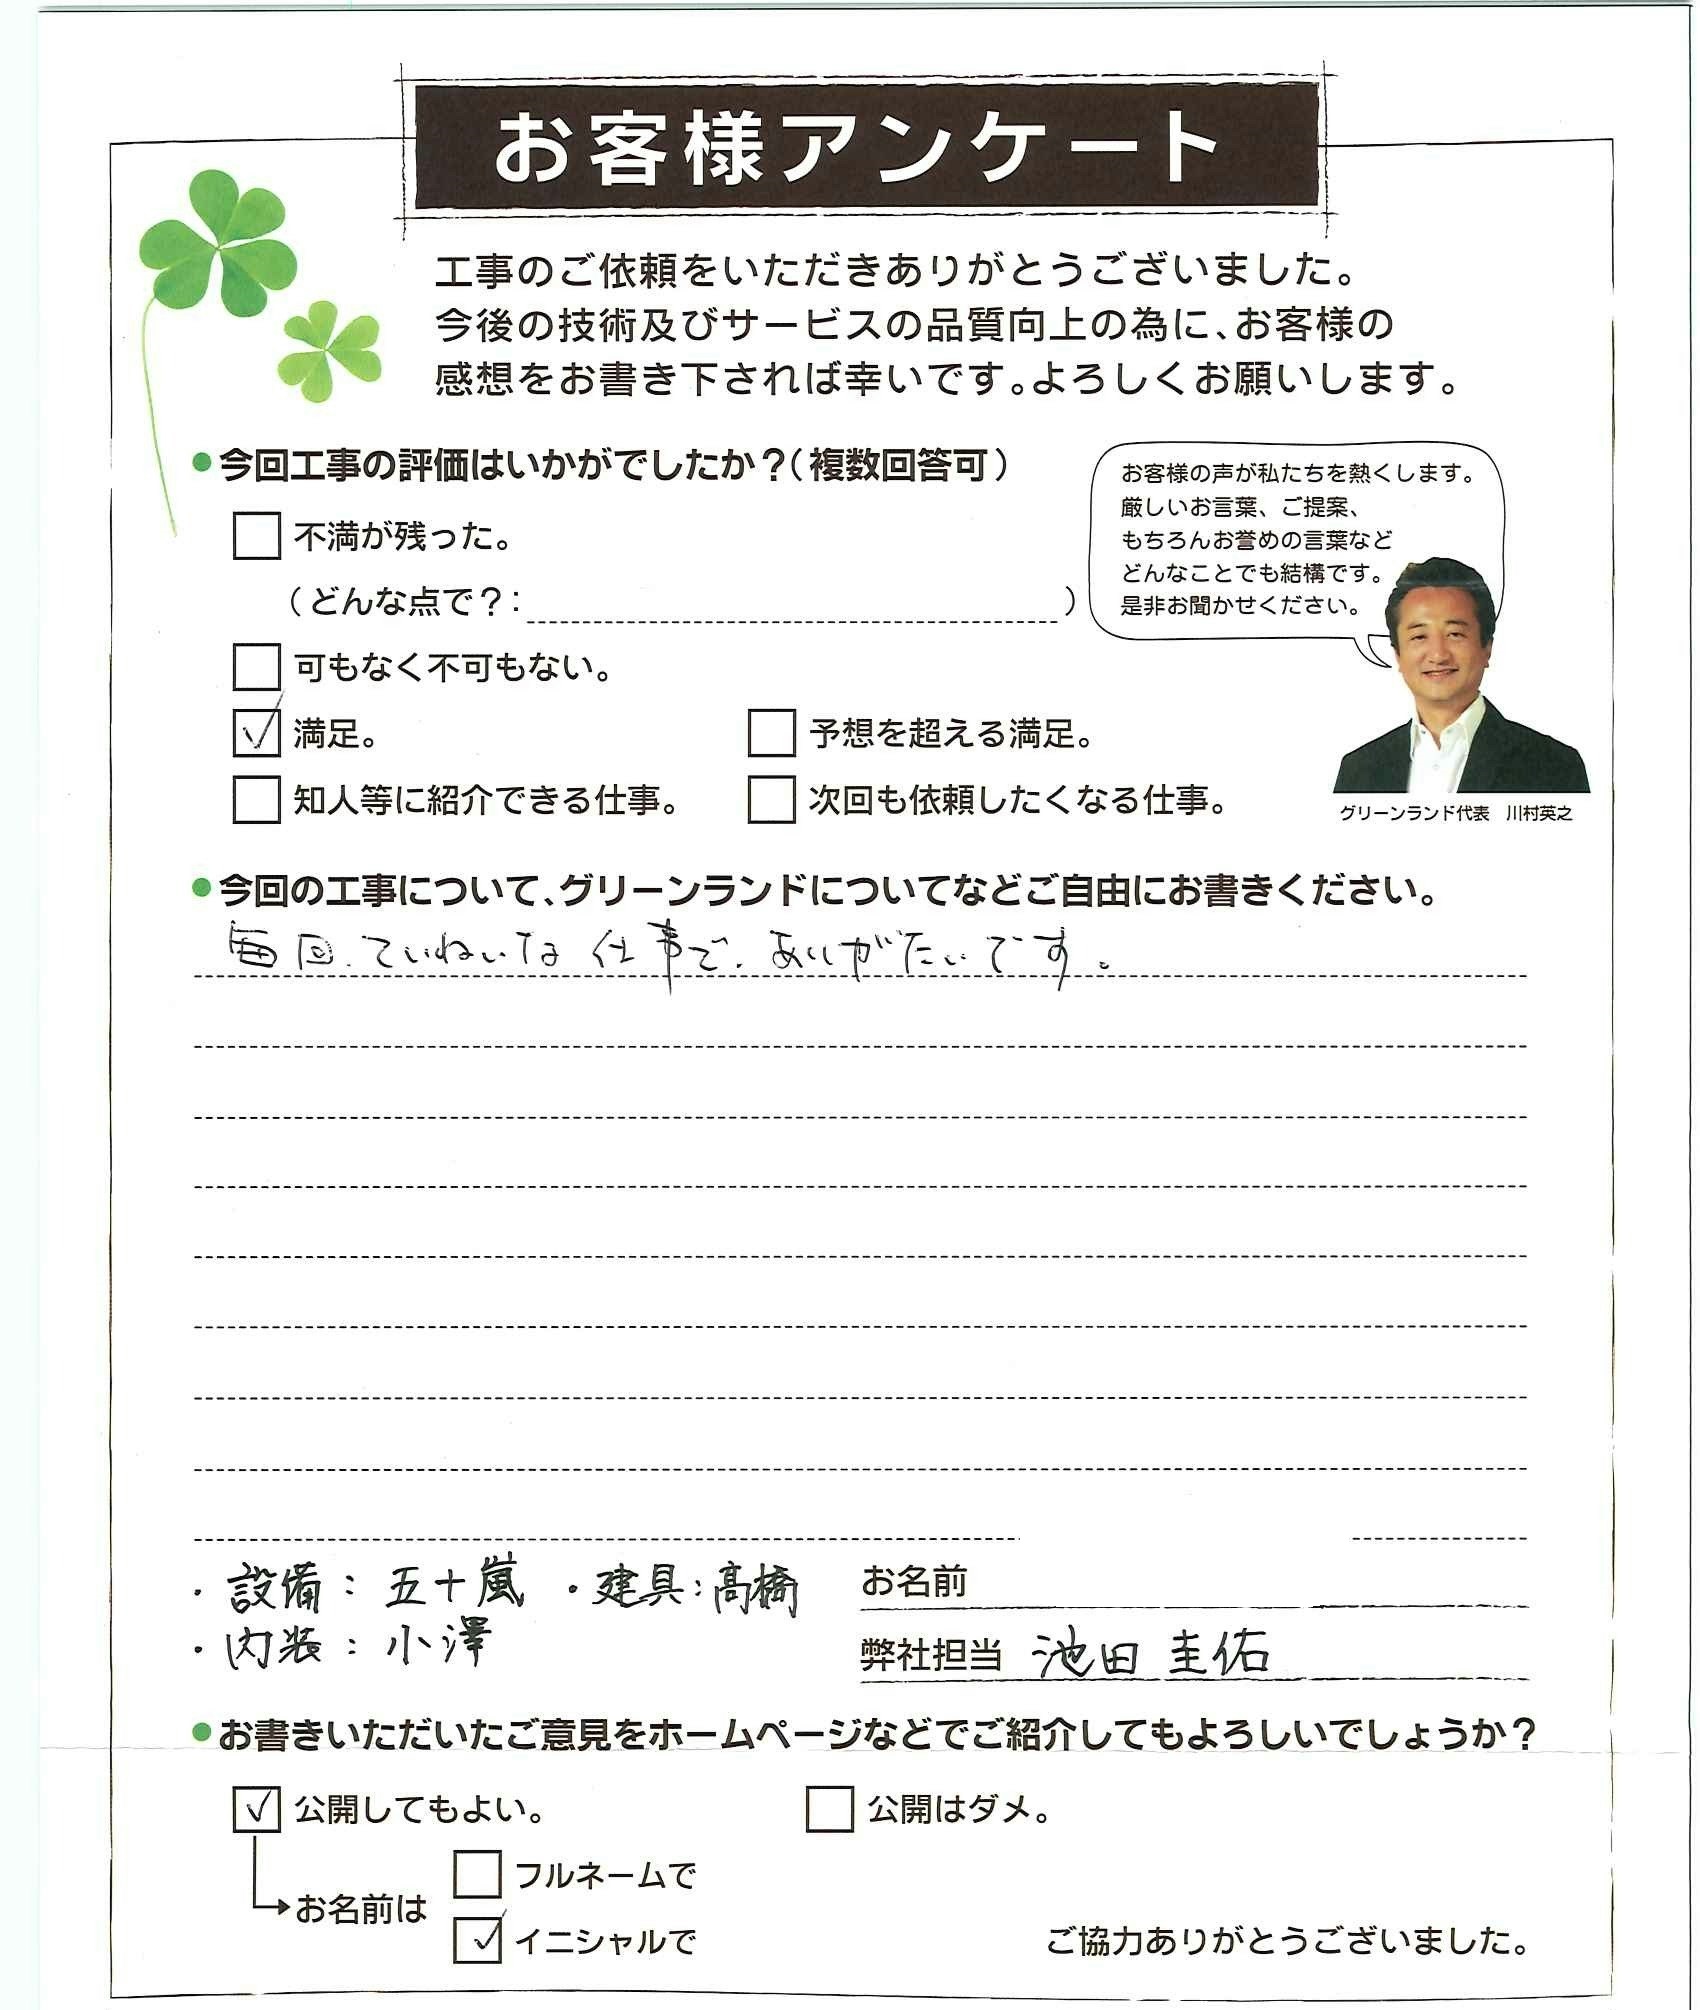 お客様アンケート
工事のご依頼をいただきありがとうございました。
今後の技術及びサービスの品質向上の為に、お客様の
感想をお書き下されば幸いです。よろしくお願いします。
●今回工事の評価はいかがでしたか？（複数回答可）
不満が残った。
（どんな点で？：　）
可もなく不可もない。
満足。
予想を超える満足。
知人等に紹介できる仕事。
次回も依頼したくなる仕事。
お客様の声が私たちを熱くします。
厳しいお言葉、ご提案、
もちろんお誉めの言葉など
どんなことでも結構です。
是非お聞かせください。
グリーンランド代表　川村英之
●今回の工事について、グリーンランドについてなどご自由にお書きください。
毎回、ていねいな仕事で、ありがたいです。
・設備：五十嵐 ・建具：高橋
・内装：小澤
お名前
弊社担当 池田 圭佑
●お書きいただいたご意見をホームページなどでご紹介してもよろしいでしょうか？
公開してもよい。
公開はダメ。
お名前は
フルネームで
イニシャルで
ご協力ありがとうございました。